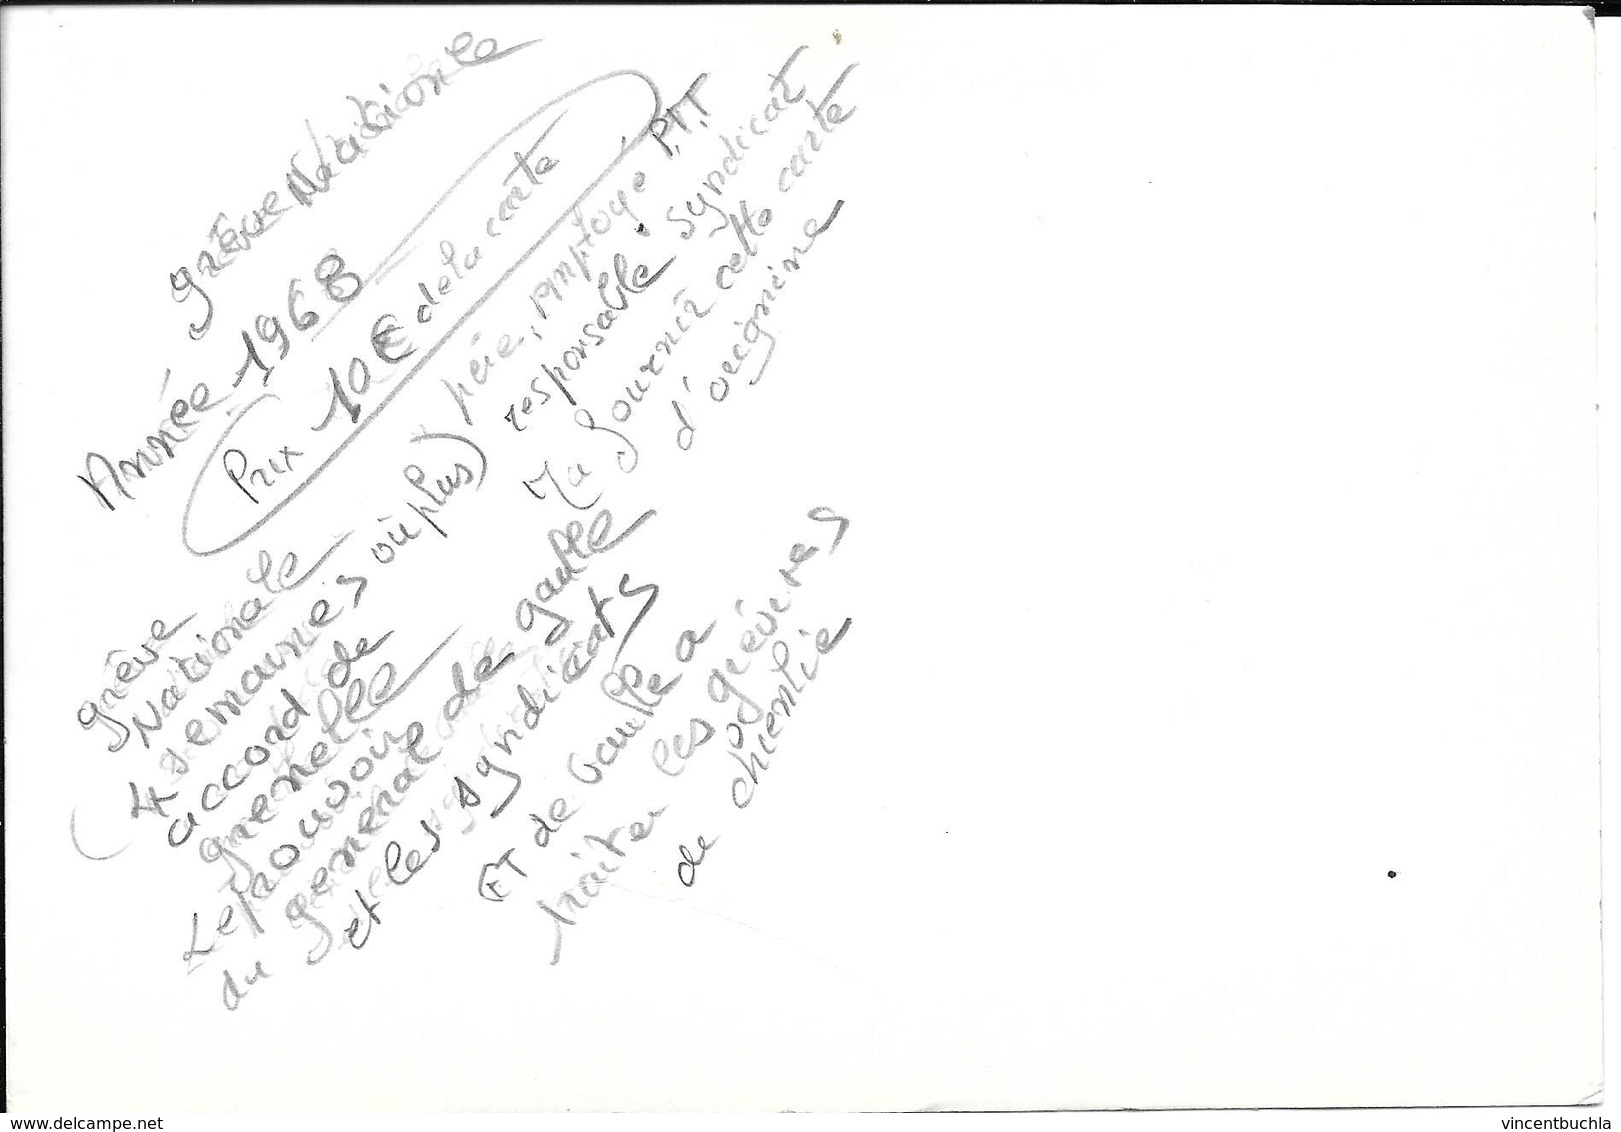 grève Nationale
Année 1968
Prix 10€ de la carte
père, employé P.T.T
responsable syndicat
Ma fournir cette carte
d'origine
grève
Nationale
(4 semaines ou plus)
accord de
grenelle
Le pouvoir
du général de gaulle
et les syndicats
ET de Gaulle a
traiter les gréviras
de chienlie
delcampe.net
vincentbuchla